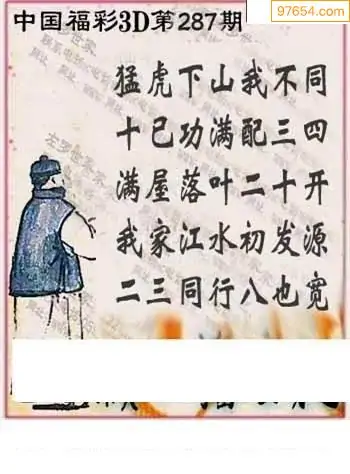 97654.com
中国福彩3D第287期
猛虎下山我不同
十已功满配三四
满屋落叶二十开
我家江水初发源
二三同行八也宽